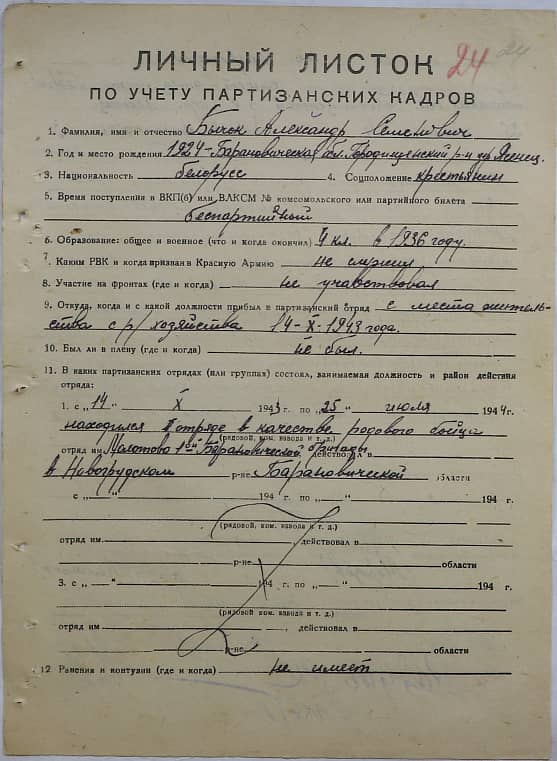 24 24
ЛИЧНЫЙ ЛИСТОК
ПО УЧЕТУ ПАРТИЗАНСКИХ КАДРОВ
1. Фамилия, имя и отчество Бычок Александр Семенович
2. Год и место рождения 1924 - Барановическая обл. Городищенский р-н др. Ясенец.
3. Национальность белорусс 4. Соцположение крестьянин
5. Время поступления в ВКП(б) или ВЛКСМ № комсомольского или партийного билета
беспартийный
6. Образование: общее и военное (что и когда окончил) 4 кл. в 1936 году.
7. Каким РВК и когда призван в Красную Армию не служил
8. Участие на фронтах (где и когда) не учавствовал
9. Откуда, когда и с какой должности прибыл в партизанский отряд с места житель-
ства с р/хозяйства 14-X-1943 года.
10. Был ли в плену (где и когда) не был.
11. В каких партизанских отрядах (или группах) состоял, занимаемая должность и район действия
отряда:
1. с „14" X 1943 г. по „25" июля 1944 г.
находился в отряде в качестве родового бойца
(рядовой, ком. взвода и т. д.)
отряд им Молотова 1-ой Барановической бригады действовал в
в Новогрудском р-не Барановической области
с „—" 194 г. по „—" 194 г.
(рядовой, ком. взвода и т. д.)
отряд им. , действовал в
р-не области
3. с „—" 194 г. по „—" 194 г.
(рядовой, ком. взвода и т. д.)
отряд им. , действовал в
р-не области
12 Ранения и контузии (где и когда) не имеет